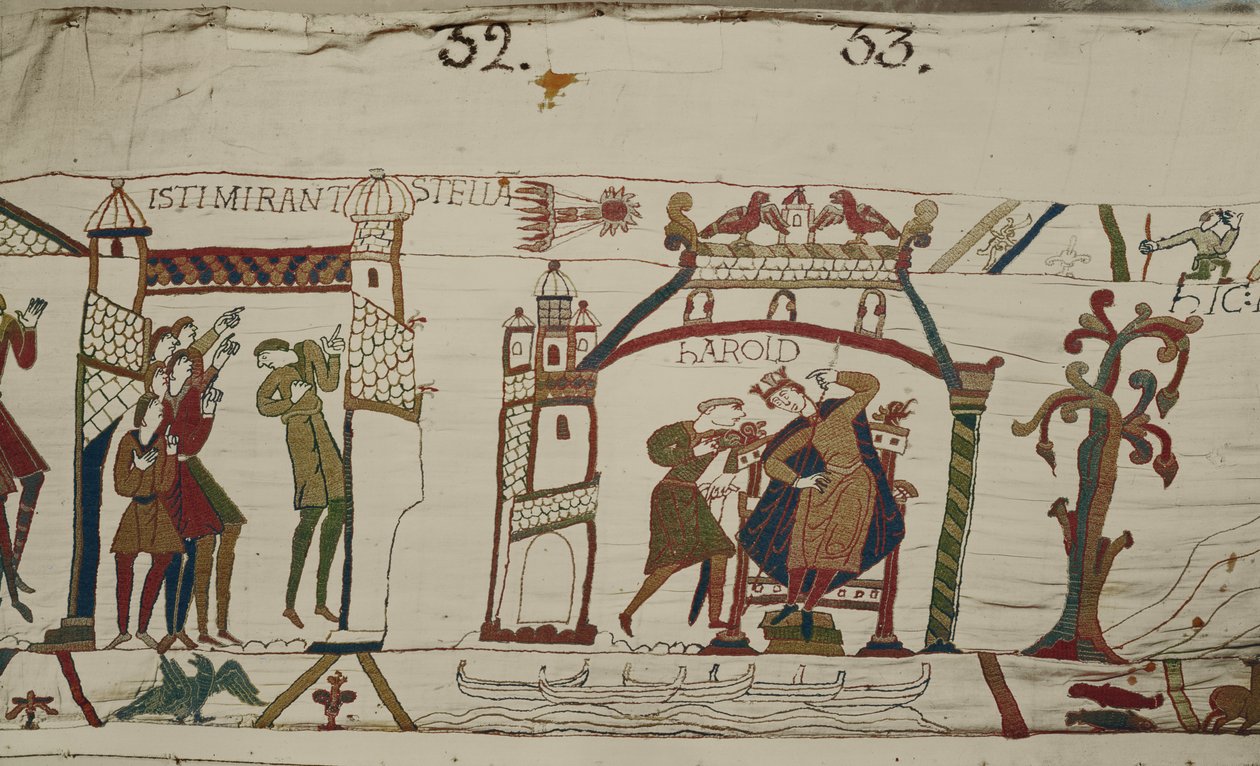 32.
33.
ISTI MIRANT STELLĀ
HAROLD
HIC: